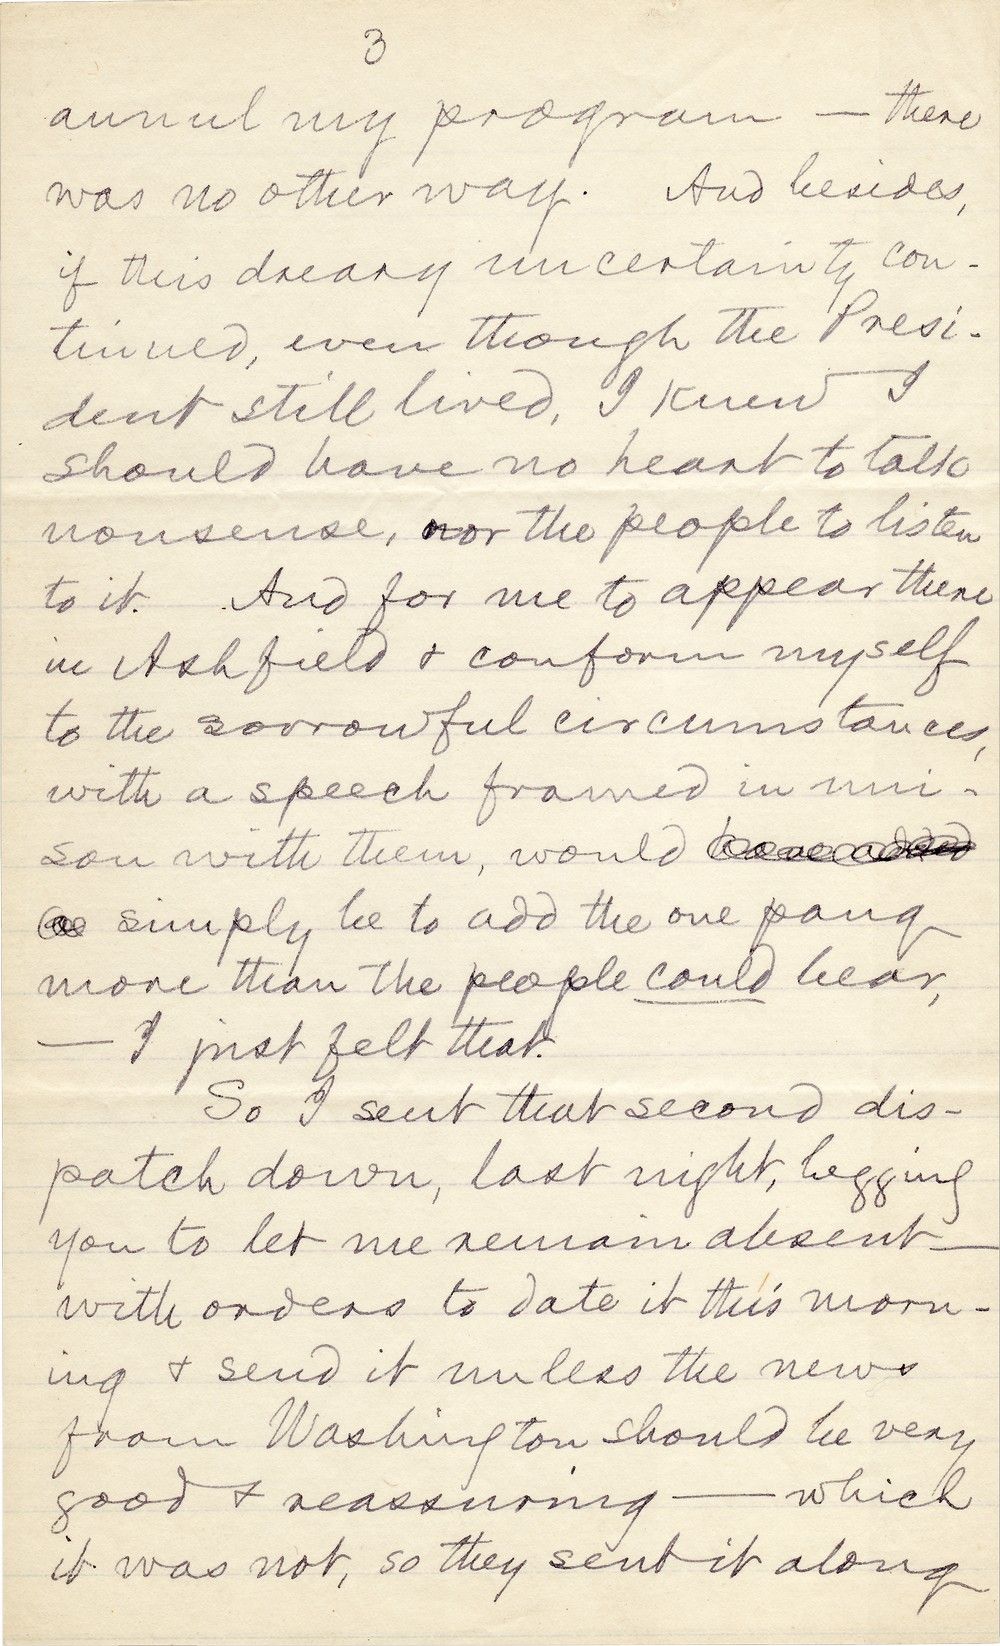 3
annul my program — there
was no other way. And besides,
if this dreary uncertainty con-
tinued, even though the Presi-
dent still lived, I knew I
should have no heart to talk
nonsense, nor the people to listen
to it. And for me to appear there
in Ashfield & conform myself
to the sorrowful circumstances,
with a speech framed in uni-
son with them, would have added
simply be to add the one pang
more than the people could bear,
— I just felt that.
So I sent that second dis-
patch down, last night, begging
you to let me remain absent —
with orders to date it this morn-
ing & send it unless the news
from Washington should be very
good & reassuring — which
it was not, so they sent it along